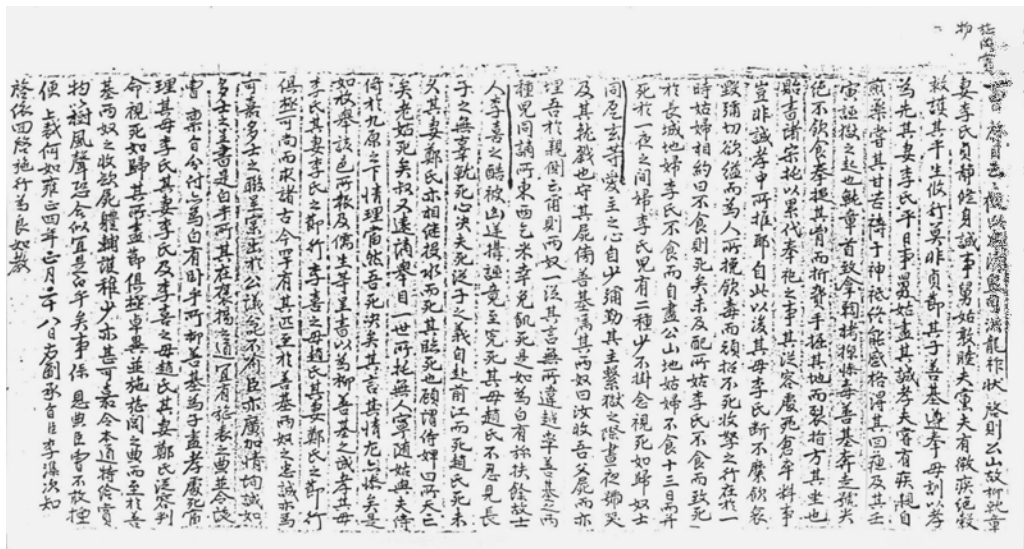 旌閭賞
物
曹 啓目 龍祚狀 啓則公山故柳就章
妻李氏貞靜修身誠事舅姑敦睦夫黨夫有微疾絕穀
救護其平生攸行莫非貞節其子善基遵奉母訓以孝
為先其妻李氏平日事舅姑盡其誠孝夫嘗有疾親自
煎藥嘗其甘苦禱于神祇終能感格得其回甦及其壬
寅誣獄之起也就章首致拿鞫拷掠慘毒善基奔走號哭
絕不飲食拳搥其胷而折 手搥其地而裂指方其坐也
貽書諸宗托以累代奉祀之事其從容處死 料事
豈非誠孝中所推耶自此以後其母李氏斷不糜飲哀
毀彌切欲縊而為人所挽飲毒而頓 不死收孥之行在於一
時姑婦相約曰不食則死矣未及配所姑李氏不食而致死
於長城地婦李氏不食而自盡公山地姑婦不食十三日而并
死於一夜之間婦李氏兒有二種少不掛念視死如歸奴士
同 玄等愛主之心自少彌勤其主繫獄之際晝夜號哭
及其就戮也守其屍傍善基罵其兩奴曰汝收吾父屍而亦
埋吾於親側云爾則兩奴一從其言無所違越李善基之兩
種兒同謫所東西乞米幸免飢死是如為白有 扶餘故士
人李喜之酷被凶逆搆誣竟至寃死其母趙氏不忍見長
子之無辜就死心决夫死從子之義自赴前江而死趙氏死未
久其妻鄭氏亦相繼投水而死其臨死也顧謂侍婢曰所天亡
矣老姑死矣叔又遠謫舉目一世所托無人寧隨姑與夫侍
倚於九原之下情理當然吾死决矣其言其情尤為慘矣是
如枚舉該邑所報及儒生等呈書以為柳善基之誠孝其母
李氏其妻李氏之節行李喜之母趙氏其妻鄭氏之節行
俱極可尚而求諸古今罕有其匹至於善基兩奴之忠誠亦為
可嘉多士之聯呈宲出於公議是 有臣亦廣加 詢誠如
多士呈書是白乎所其在褒揚之道宜有旌表之典並令該
曹 稟旨分付亦為白有卧乎所柳善基為子盡孝處死當
理其母李氏其妻李氏及李喜之母趙氏其妻鄭氏從容判
命視死如歸其所盡節俱極卓異並施旌閭之典而至於善
基兩奴之收斂屍軆輔護稚少亦甚可嘉令本道特給賞
物以樹風聲恐合似宜是白乎矣事係 恩典臣曹不敢擅
便 上裁何如雍正四年正月二十八日右副承旨臣李 次知
啓依回啓施行為良如教